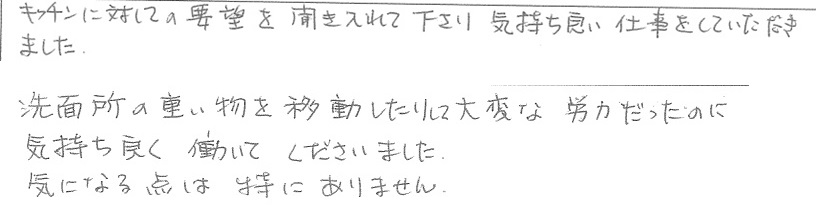 キッチンに対しての要望を聞き入れて下さり気持ち良い仕事をしていただき
ました.
洗面所の重い物を移動したりして大変な労力だったのに
気持ち良く働いてくださいました.
気になる点は特にありません.